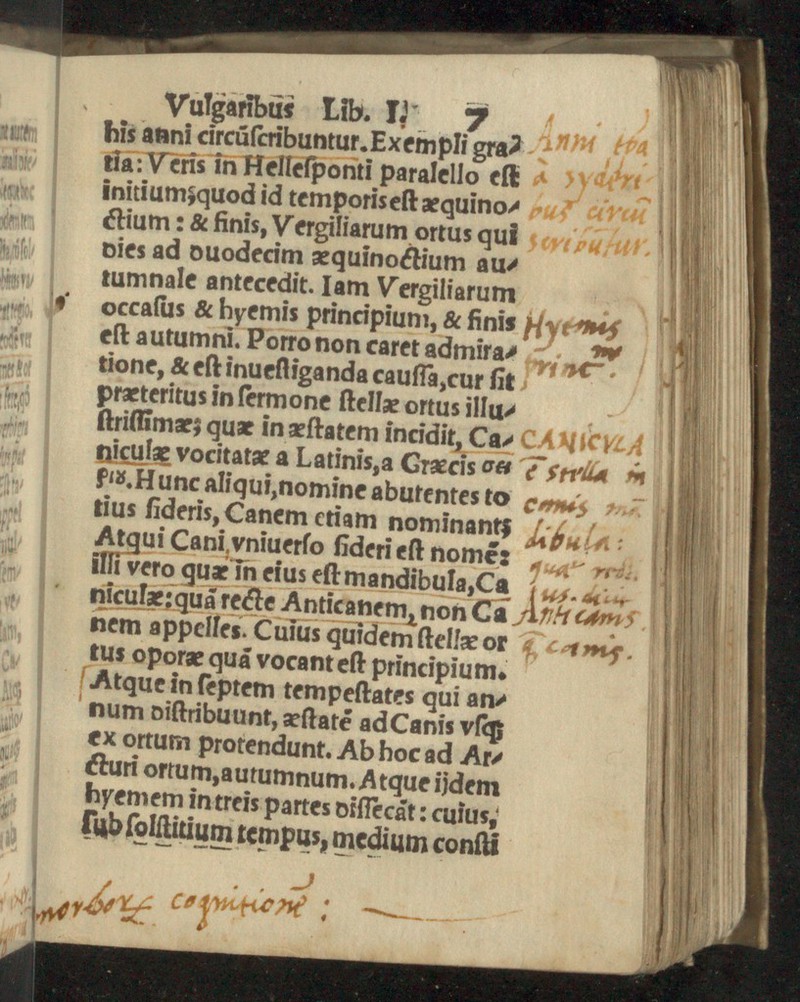 Vulgaribus Lib. I. 7
his anni circūſcribuntur. Exempli gra⸗
tia: Veris in Helleſponti paralello eſt
initium;quod id temporis eſt æquino⸗
ctium: & finis, Vergiliarum ortus qui
dies ad duodecim æquinoctium au⸗
tumnale antecedit. Iam Vergiliarum
occaſus & hyemis principium, & finis
eſt autumni. Porro non caret admira⸗
tione, & eſt inueſtiganda cauſſa,cur ſit
præteritus in ſermone ſtellæ ortus illu⸗
ſtriſſimæ; quæ in æſtatem incidit, Ca⸗
niculæ vocitatæ a Latinis,a Græcis σει
ριȣ. Hunc aliqui,nomine abutentes to
tius ſideris, Canem etiam nominant;
Atqui Cani vniuerſo ſideri eſt nomē:
illi vero quæ in eius eſt mandibula,Ca
niculæ:quā recte Anticanem, non Ca
nem appelles. Cuius quidem ſtellæ or
tus oporæ quā vocant eſt principium.
Atque in ſeptem tempeſtates qui an⸗
num diſtribuunt, æſtatē ad Canis vſq;
ex ortum protendunt. Ab hoc ad Ar⸗
cturi ortum,autumnum. Atque ijdem
hyemem in treis partes diſſecāt: cuius,
ſub ſolſtitium tempus, medium conſti
Anni
a syderi
bus circū
scributur.
Hyemis
princ.
CANICVLA
ē stella in
canis
dibula:
Anticanis
canis.
morborū cognitionē :